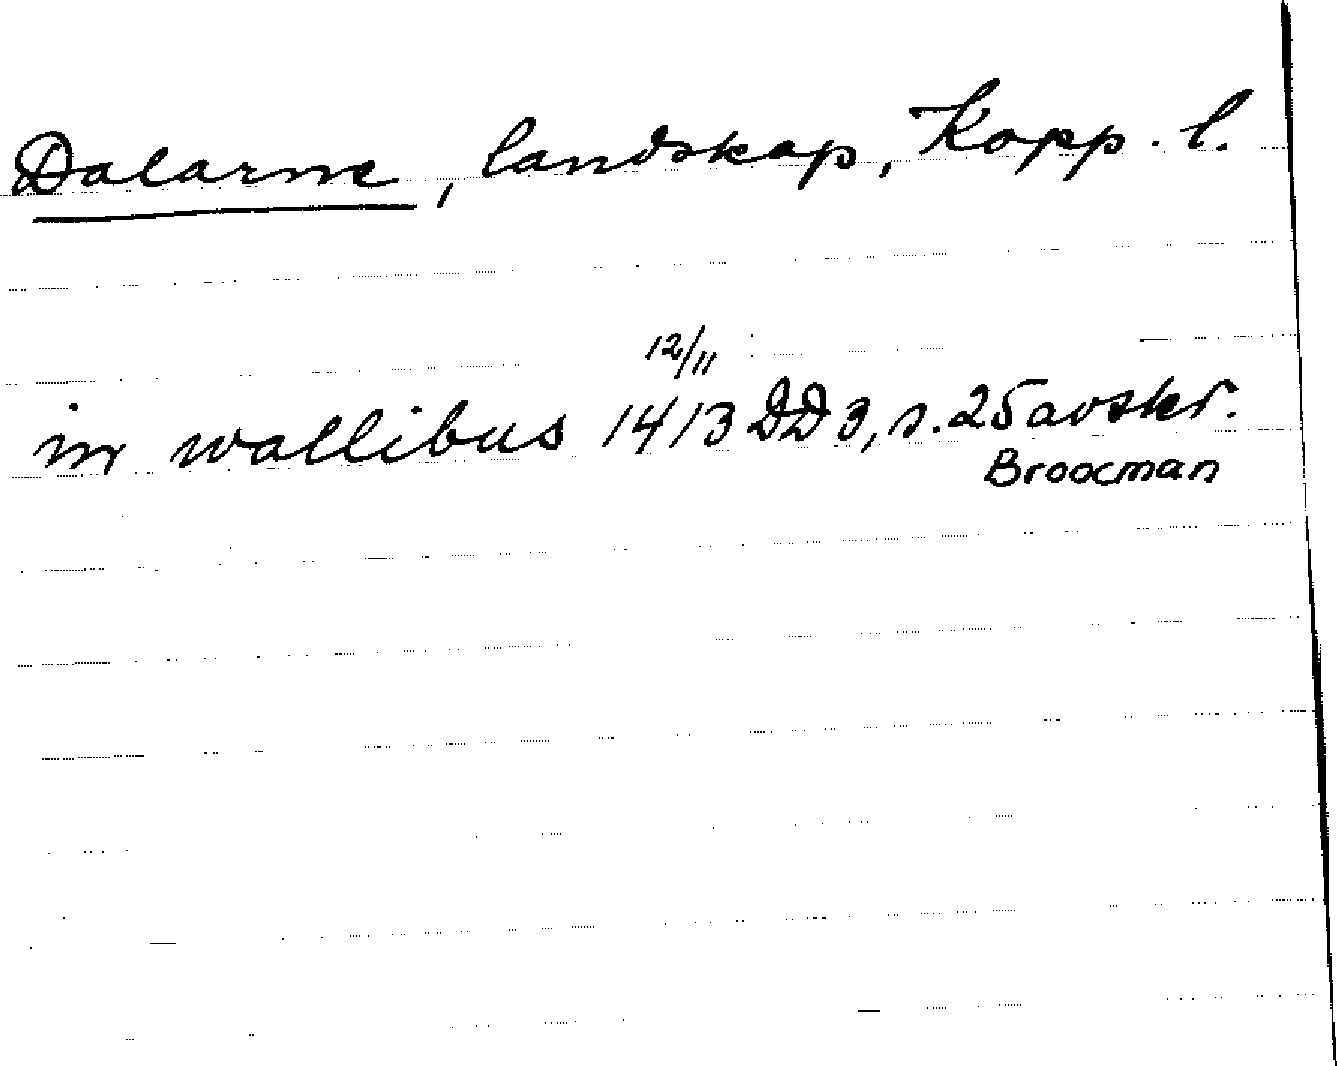 Dalarne, landskap, Kopp. l.
12/11
in wallibus 1413 DD 3, s. 25 avskr.
Broocman